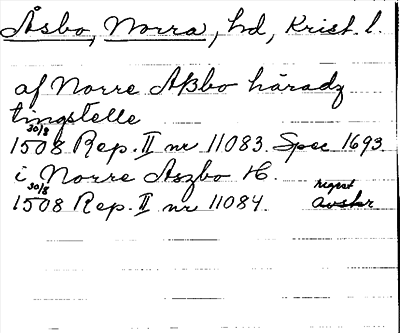 Åsbo, Norra, hd, Krist. l.
af Norre Aßbo häradz
tingstelle
30/8
1508 Rep. II nr 11083. Spec 1693.
i Norre Aszbo H.
30/8 regest
1508 Rep. II nr 11084. avskr